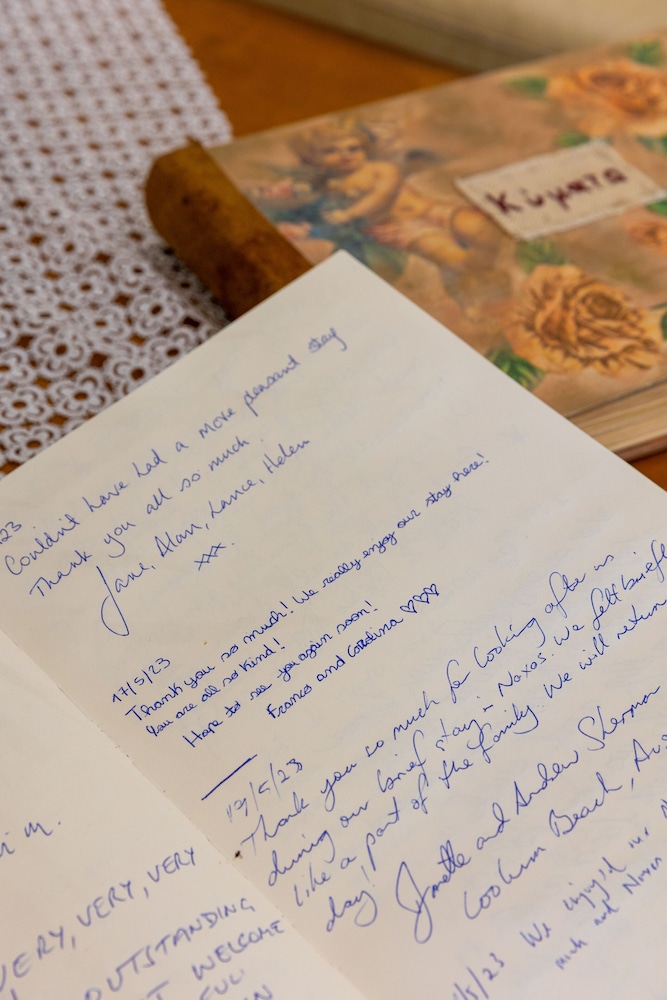 Κύματα
23
Couldn't have had a more pleasant stay
Thank you all so much.
Jane, Alan, Lance, Helen
xxx.
17/5/23
Thank you so much! We really enjoy our stay here!
You are all so kind!
Hope to see you again soon!
Franco and Carolina ♡♡♡
19/5/23
Thank you so much for looking after us
during our brief stay in Naxos. We felt briefly
like a part of the family. We will return
day! Janette and Andrew Sherman
Coolum Beach,
/5/23 We enjoy'd our
much and Naxos
m.
VERY, VERY, VERY
OUTSTANDING
WELCOME